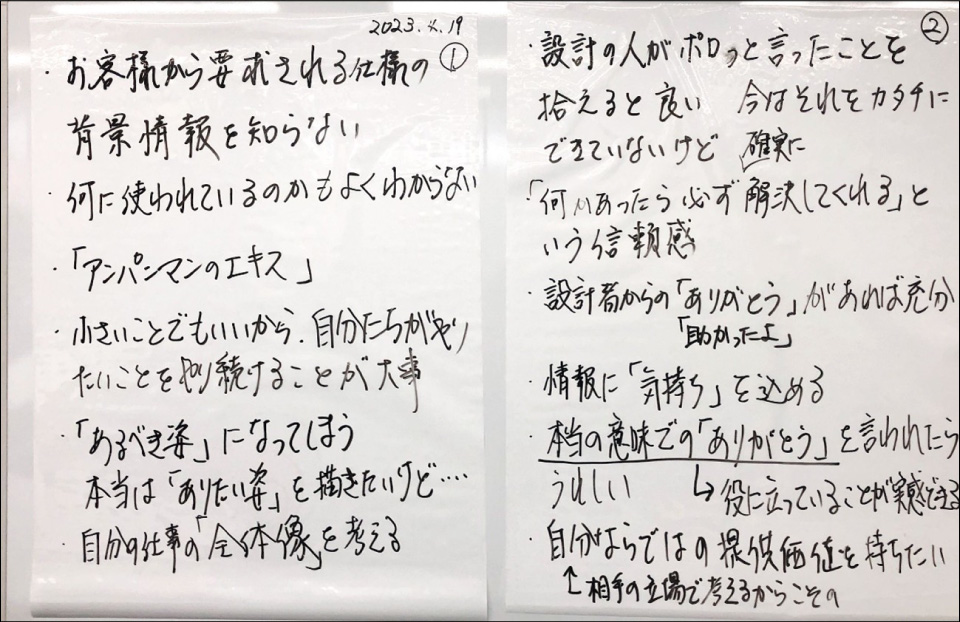 2023.4.19
①
・お客様から要求される仕様の
背景情報を知らない
・何に使われているのかもよくわからない
・「アンパンマンのエキス」
・小さいことでもいいから、自分たちがやり
たいことをやり続けることが大事
・「あるべき姿」になってしまう
本当は「ありたい姿」を描きたいけど‥‥
・自分の仕事の「全体像」を考える
②
・設計の人がポロっと言ったことを
拾えると良い 今はそれをカタチに
できていないけど
確実に
・「何かあったら必ず解決してくれる」と
いう信頼感
・設計者からの「ありがとう」があれば充分
「助かったよ」
・情報に「気持ち」を込める
・本当の意味での「ありがとう」を言われたら
うれしい ↳役に立っていることが実感できる
・自分ならではの提供価値を持ちたい
↑相手の立場で考えるからこその